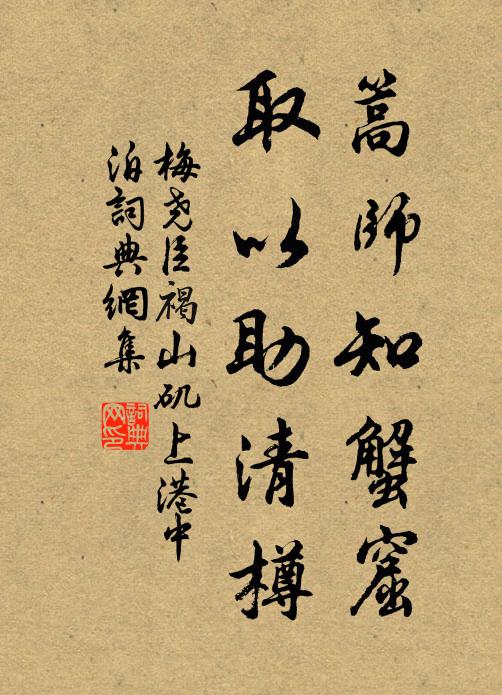 篙師知蟹窟
取以助清樽
梅尧臣褐山矶上港中
泊詞典網集
詞典
网印